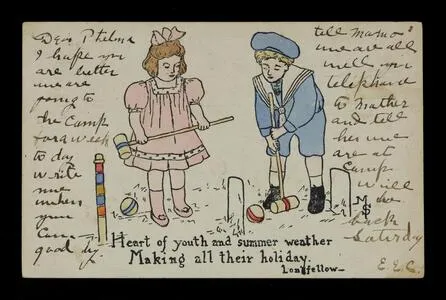 Dear Thelma
I hope you
are better
we are
going to
the Camp
for a week
to day
write
me
when
you
Can
good by.
tell mama
we are all
well you
telephone
to Mather
and tell
her we
are at
Camp
will be
back
Saturday
E.E.C.
MS
Heart of youth and summer weather
Making all their holiday.
Longfellow—